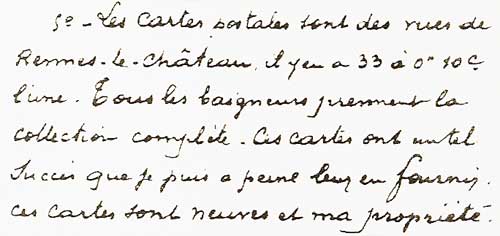 5º - Les cartes postales sont des vues de
Rennes-le-Château, il y en a 33 à 0f 10c
l'une. Tous les baigneurs prennent la
collection complète. Ces cartes ont un tel
succès que je puis a peine leur en fournir.
ces cartes sont neuves et ma propriété.